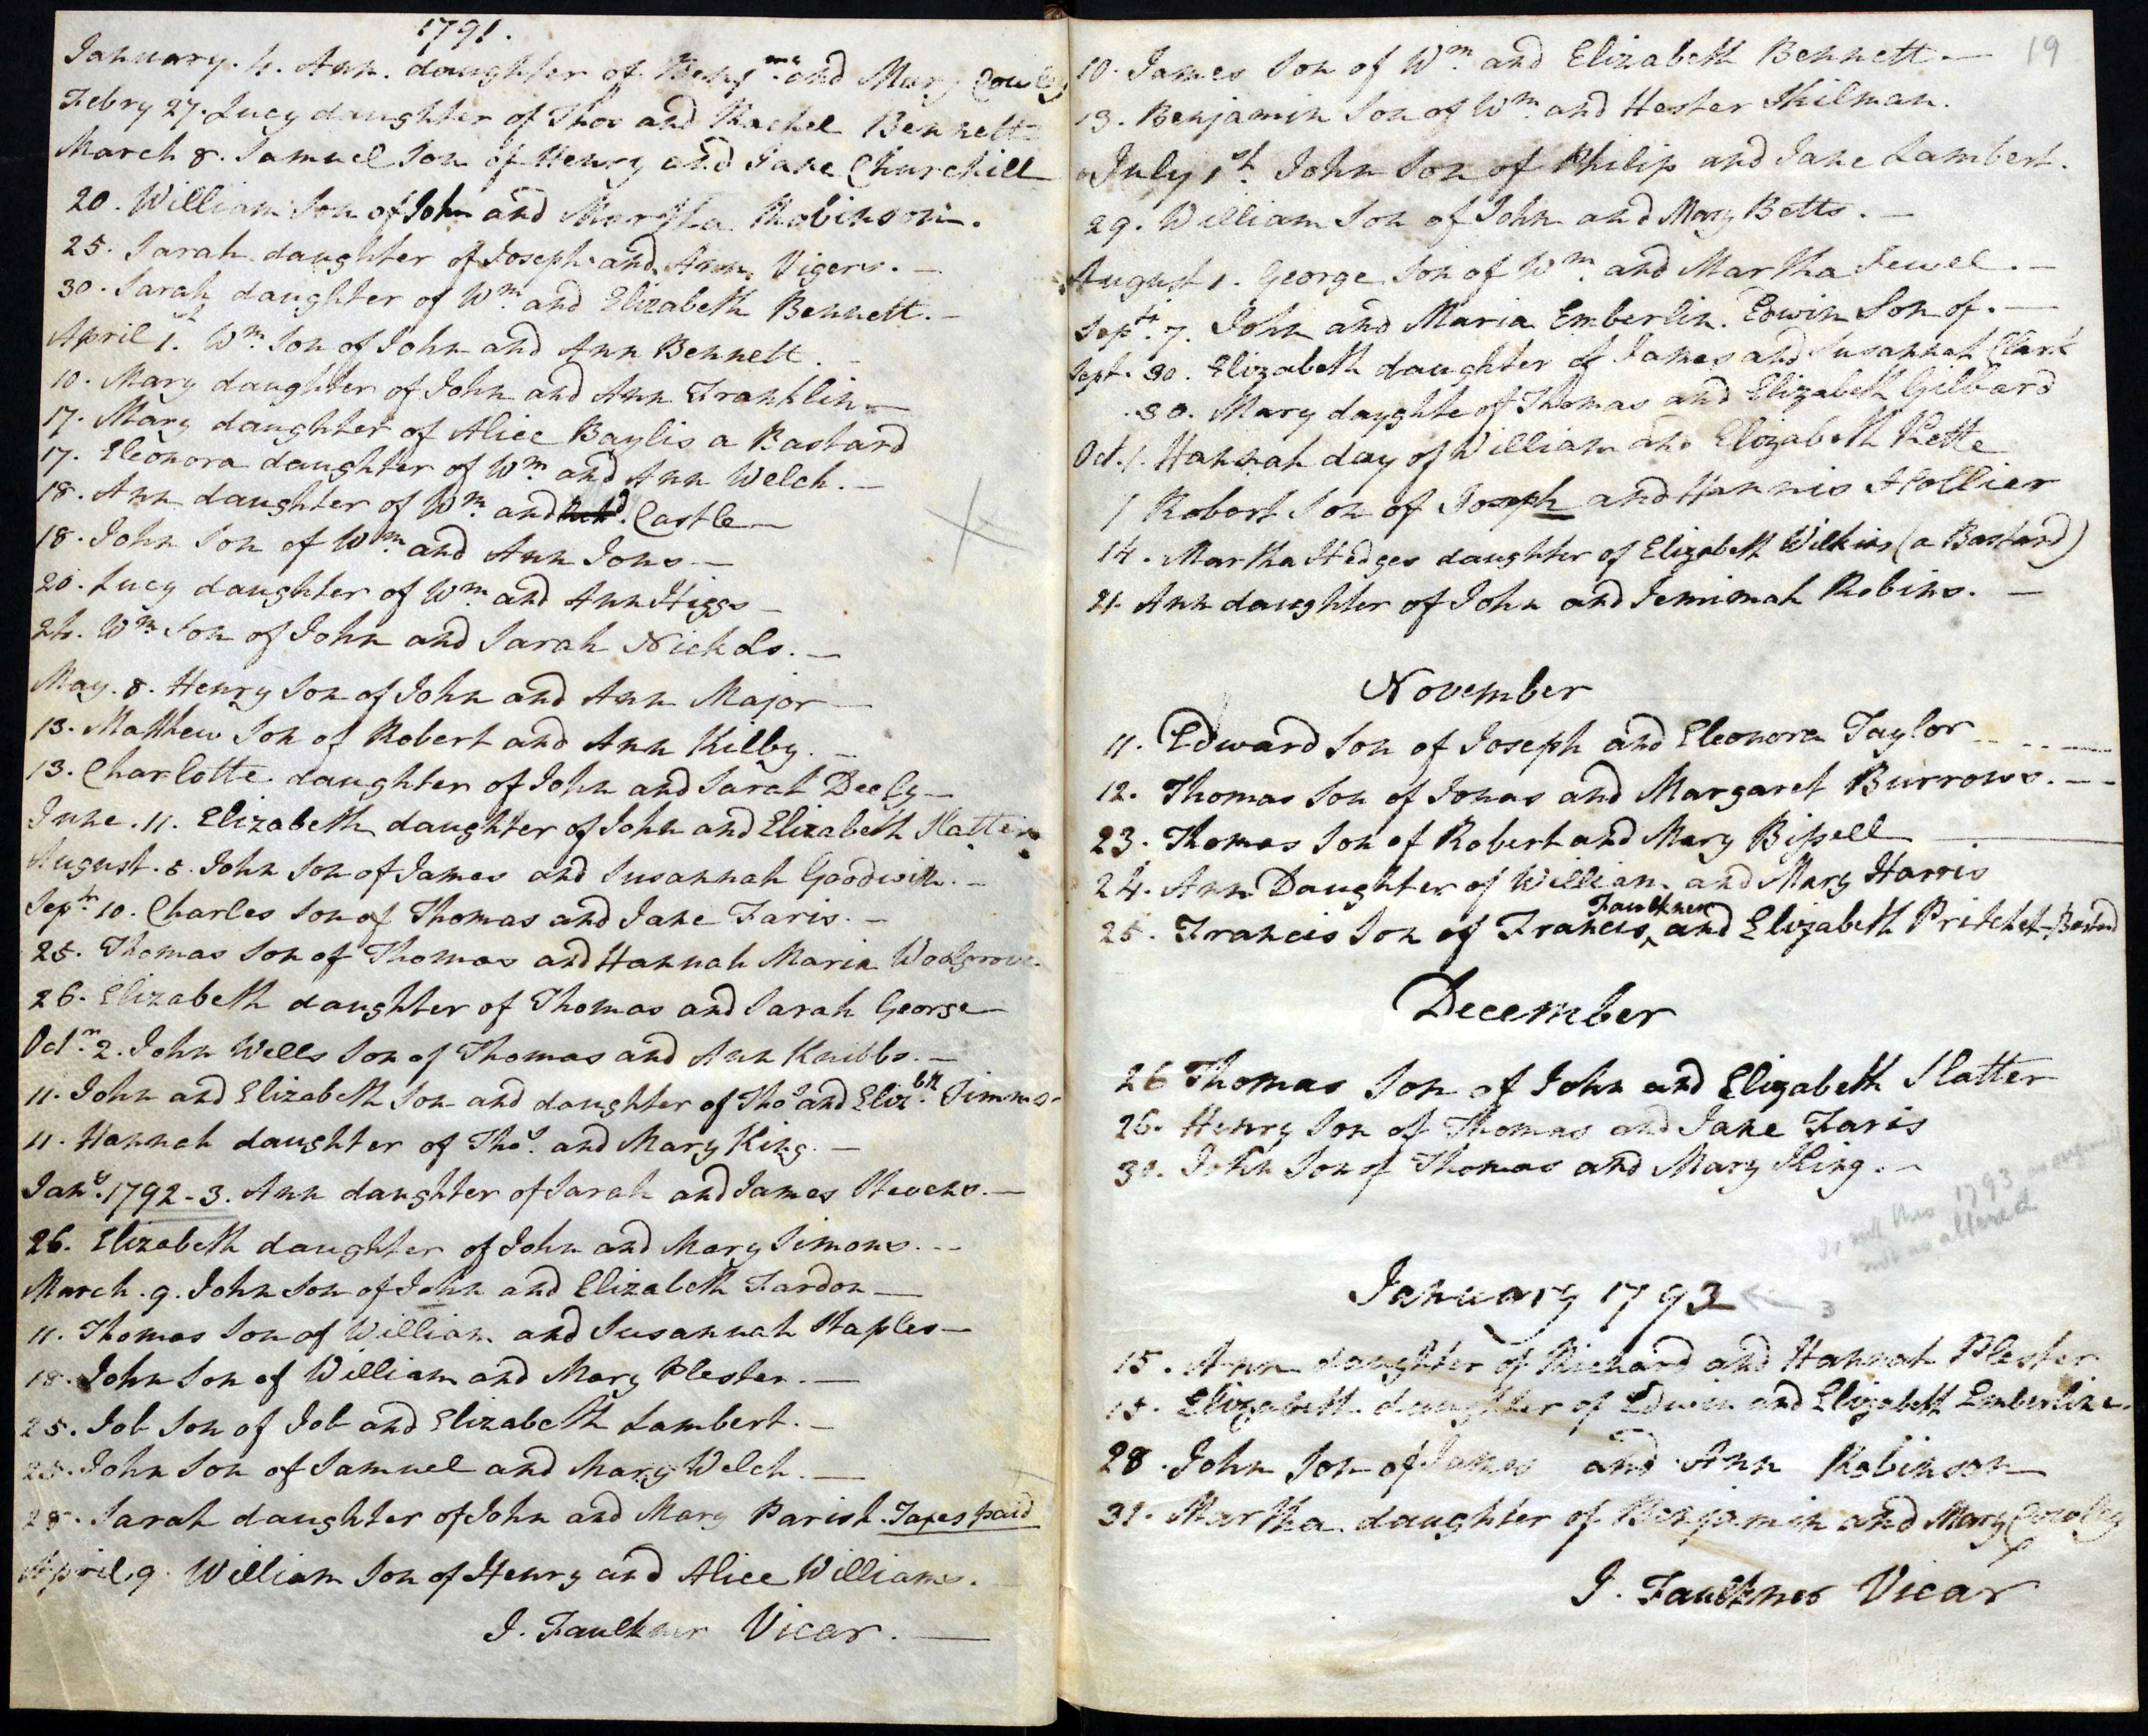 1791.
January. 4. Ann. daughter of Benjmn and Mary Cowley
Febry 27. Lucy daughter of Thos and Rachel Bennett
March 8. Samuel Son of Henry and Jane Churchill
20. William Son of John and Martha Robinson.
25. Sarah daughter of Joseph and Ann Vigers. —
30. Sarah daughter of Wm. and Elizabeth Bennett. —
April 1. Wm. Son of John and Ann Bennett. —
10. Mary daughter of John and Ann Franklin —
17. Mary daughter of Alice Baylis a Bastard
17. Eleonora daughter of Wm. and Ann Welch. —
18. Ann daughter of Wm. and Castle —
18. John Son of Wm. and Ann Jons —
20. Lucy daughter of Wm. and Ann Higgs —
24. Wm. Son of John and Sarah Nickols. —
May. 8. Henry Son of John and Ann Major —
13. Matthew Son of Robert and Ann Kilby. —
13. Charlotte daughter of John and Sarah Deely —
June. 11. Elizabeth daughter of John and Elizabeth Slatter
August. 5. John Son of James and Susannah Goodwin. —
Septr 10. Charles Son of Thomas and Jane Faris. —
25. Thomas Son of Thomas and Hannah Maria Wodgrove.
26. Elizabeth daughter of Thomas and Sarah George
Octr. 2. John Wells Son of Thomas and Ann Knibbs. —
11. John and Elizabeth Son and daughter of Thos and Elizbth. Timms.
11. Hannah daughter of Thos. and Mary King. —
Jany. 1792 - 3. Ann daughter of Sarah and James Stevens. —
26. Elizabeth daughter of John and Mary Simons. —
March. 9. John Son of John and Elizabeth Fardon —
11. Thomas Son of William and Susannah Staples —
18. John Son of William and Mary Plester. —
25. Job Son of Job and Elizabeth Lambert. —
25. John Son of Samuel and Mary Welch. —
28. Sarah daughter of John and Mary Parish. Taxes paid
April 9. William Son of Henry and Alice Williams.
J. Faulkner Vicar. —
19
10. James Son of Wm. and Elizabeth Bennett —
13. Benjamin Son of Wm. and Hester Skilman.
July 1st. John Son of Philip and Jane Lambert.
29. William Son of John and Mary Betts. —
August 1. George Son of Wm. and Martha Jewel. —
Septr. 7. John and Maria Emberlin. Edwin Son of. —
Sept. 30. Elizabeth daughter of James and Susannah Clark
.30. Mary dayghte of Thomas and Elizabeth Gilbard
Oct. 1. Hannah day of William and Elizabeth Kette
1 Robert Son of Joseph and Hannis Hollier
14. Martha Hedges daughter of Elizabeth Wilkins (a Bastard)
21. Ann daughter of John and Jemimah Robins. —
November
11. Edward Son of Joseph and Eleonora Taylor
12. Thomas Son of Jonas and Margaret Burrows. —
23. Thomas Son of Robert and Mary Bissell
24. Ann Daughter of William and Mary Harris
Faulkner
25. Francis Son of Francis ^ and Elizabeth Pritchet Bastard
December
26 Thomas Son of John and Elizabeth Slatter
26. Henry Son of Thomas and Jane Faris
30. John Son of Thomas and Mary King. —
1793
not as altered
January 1793 3
15. Ann daughter of Richard and Hannah Plester
15. Elizabeth daughter of Edwin and Elizabeth Emberline.
28. John Son of James and Ann Robinson
31. Martha daughter of Benjamin and Mary Cowley
J. Faulkner Vicar